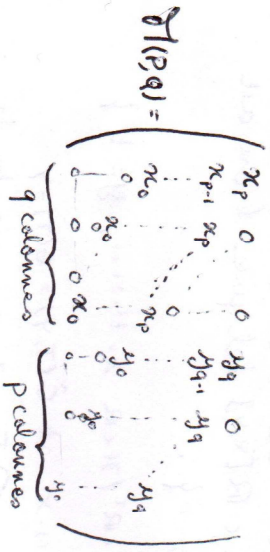 M(P,Q) =
x_p 0 0 y_q 0
x_{p-1} x_p 0 y_{q-1} y_q
x_0 x_p y_0 y_q
0 x_0 0 y_0
0 0 0 x_0 0 0 y_0
q colonnes p colonnes